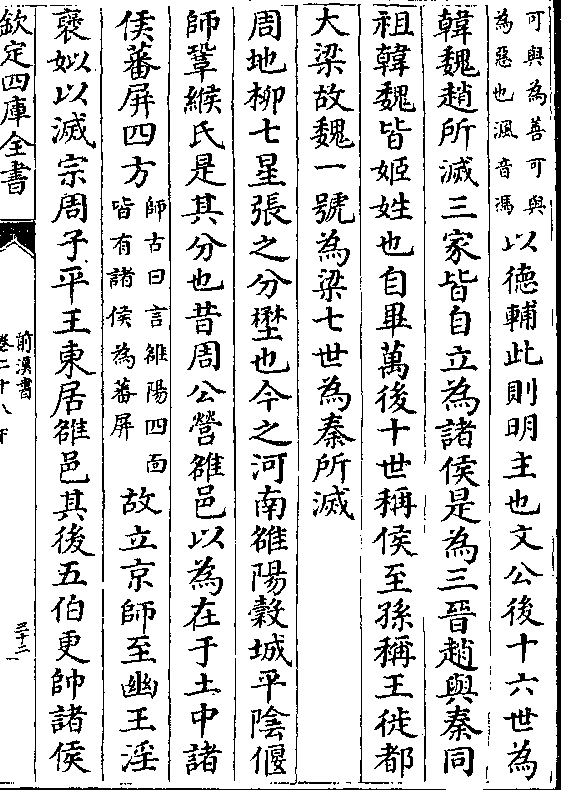 可與為善可與
為惡也渢音馮
以德輔此則明主也文公後十六世為
韓魏趙所滅三家皆自立為諸侯是為三晉趙與秦同
祖韓魏皆姬姓也自畢萬後十世稱侯至孫稱王徙都
大梁故魏一號為梁七世為秦所滅
周地栁七星張之分壄也今之河南雒陽穀城平陰偃
師鞏緱氏是其分也昔周公營雒邑以為在于土中諸
侯蕃屏四方
師古曰言雒陽四面
皆有諸侯為蕃屏
故立京師至幽王淫
褒姒以滅宗周子平王東居雒邑其後五伯更帥諸侯
欽定四庫全書
前漢書
卷二十八下